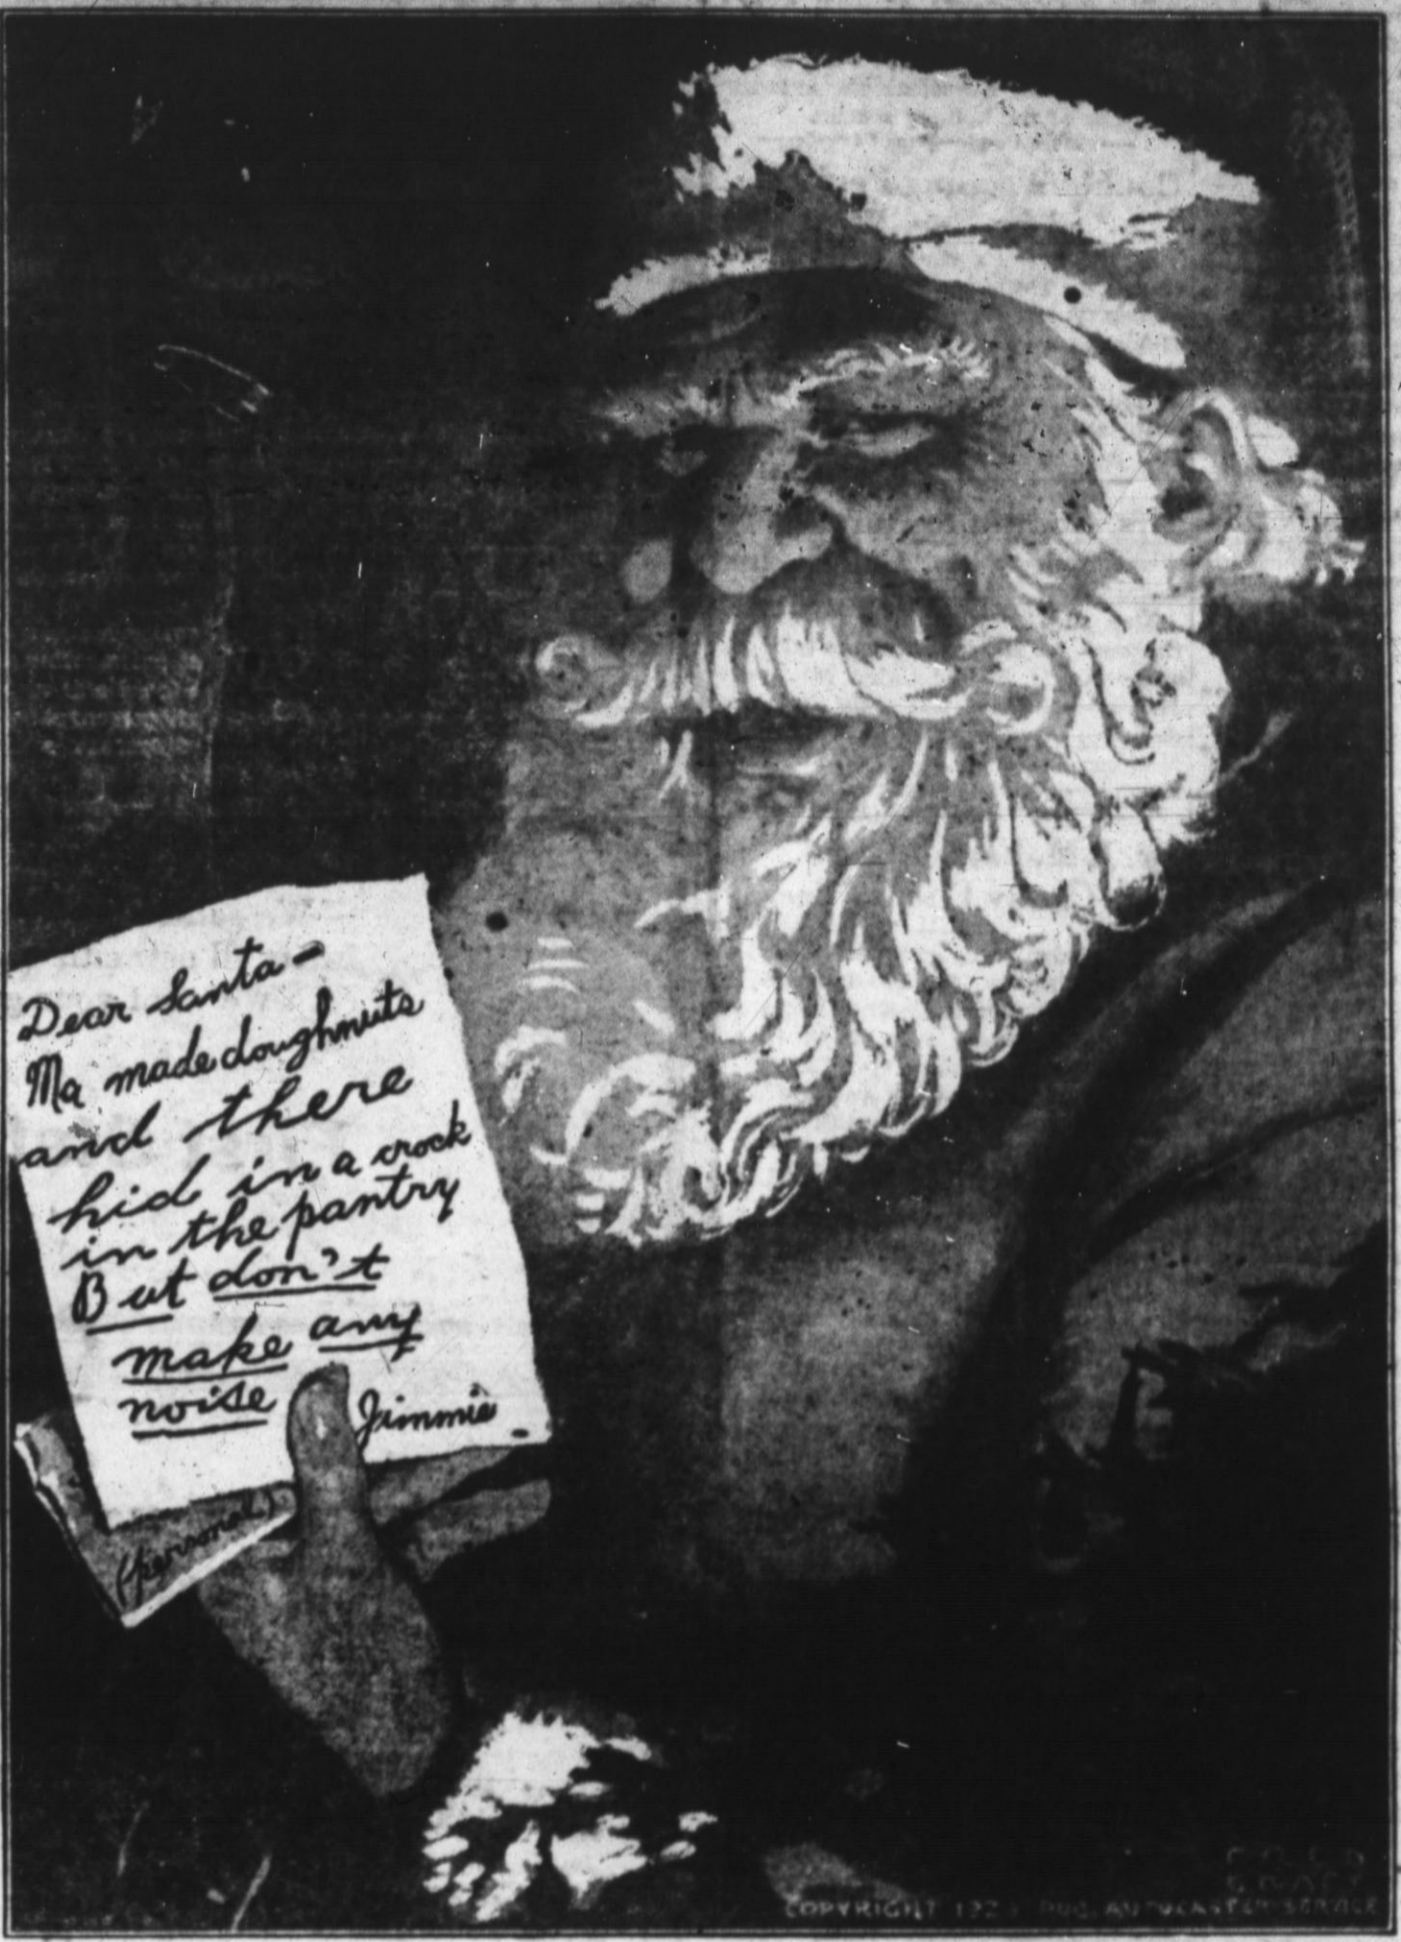 Dear Santa—
Ma made doughnuts
and there
hid in a crock
in the pantry
But don't
make any
noise
Jimmie
(personal)
COPYRIGHT PUB. AUTOCASTER SERVICE